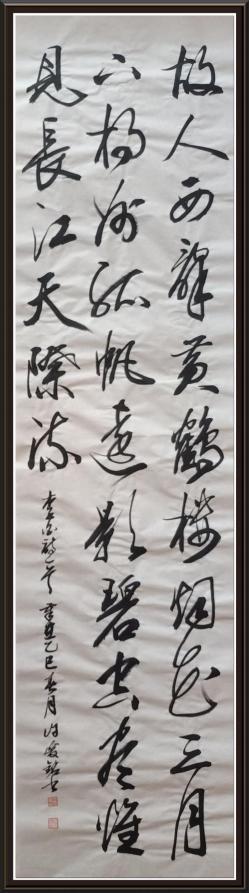 故人西辭黄鶴樓烟花三月
下揚州孤帆遠影碧空盡惟
見長江天際流
李白詩一首 乙巳春月